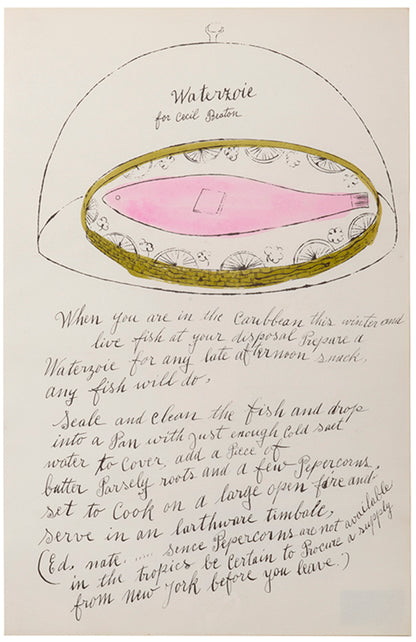 Waterzoie
for Cecil Beaton
When you are in the Caribbean this winter and
live fish at your disposal Prepare a
Waterzoie for any late afternoon snack,
any fish will do,
Scale and clean the fish and drop
into a Pan with just enough Cold salt
water to Cover, add a Piece of
butter Parsely roots and a few Pepercorns,
set to Cook on a large open fire and
serve in an earthware timbale,
(Ed. nate..... sence Pepercorns are not available
in the tropics be Certain to Procure a supply
from New York before you leave.)